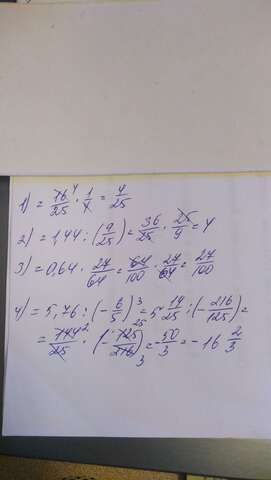 1) = 16/25 · 1/4 = 4/25
2) = 1,44 : (9/25) = 36/25 · 25/9 = 4
3) = 0,64 · 27/64 = 64/100 · 27/64 = 27/100
4) = 5,76 : (- 6/5)³ = 5 19/25 : (- 216/125) =
= 144/25 · (- 125/216) = - 50/3 = - 16 2/3